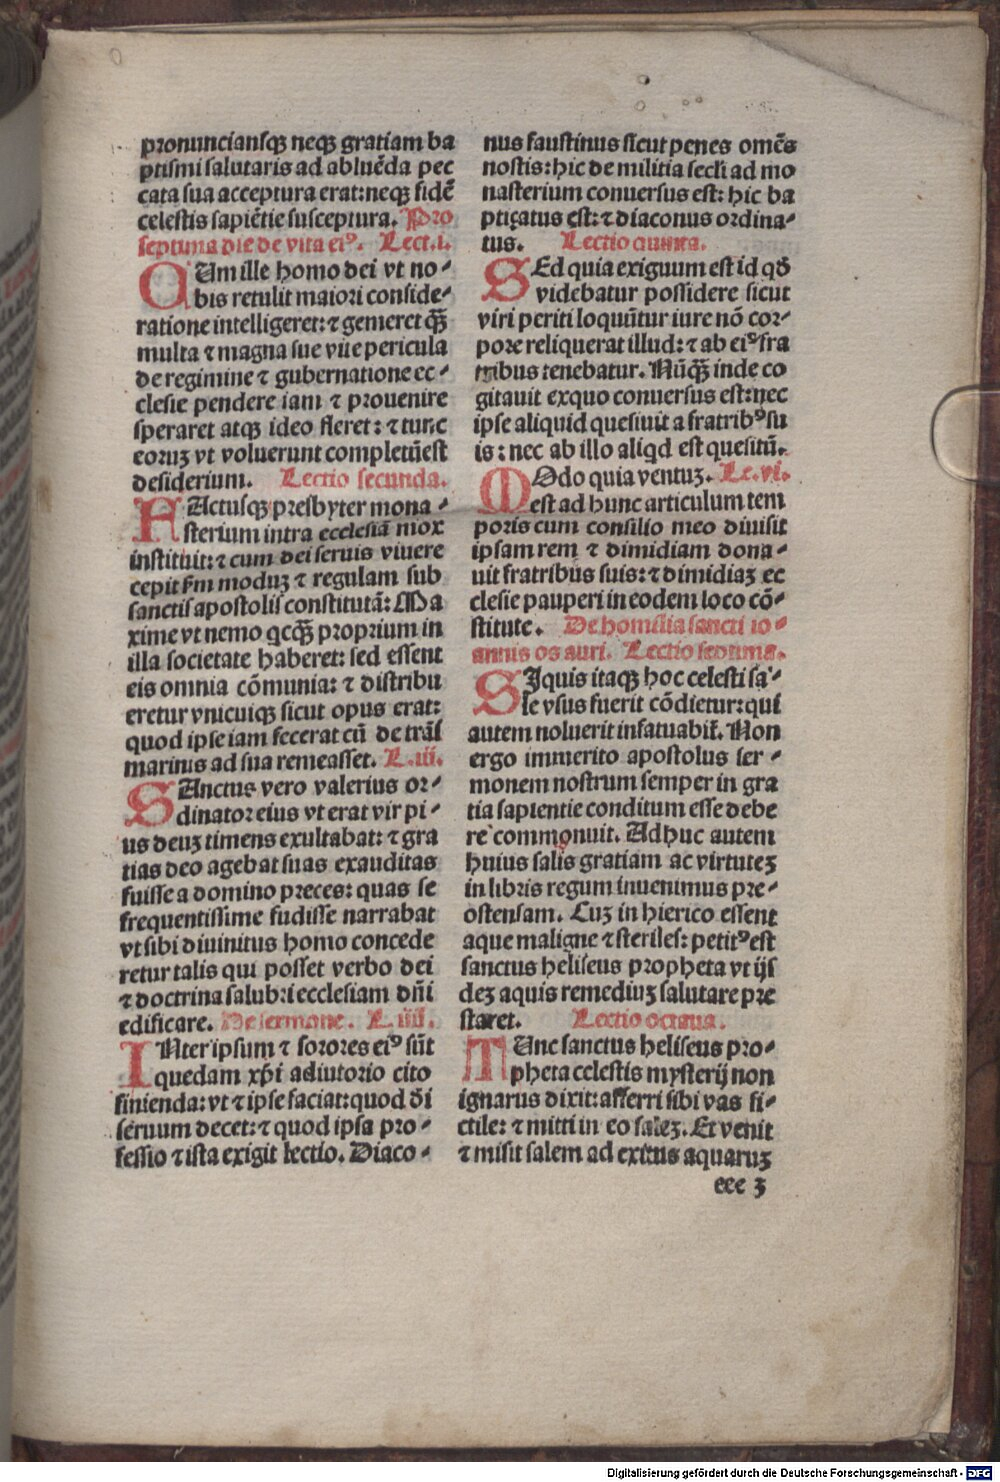 pronunciansqꝫ neqꝫ gratiam ba
ptismi salutaris ad abluēda pec
cata sua acceptura erat: neqꝫ fidē
celestis sapiētie susceptura. Pro
septima die de vita eiꝰ. Lect.i.
CUm ille homo dei vt no⸗
bis retulit maiori conside⸗
ratione intelligeret: ⁊ gemeret qꝫ̄
multa ⁊ magna sue vite pericula
de regimine ⁊ gubernatione ec⸗
clesie pendere iam ⁊ prouenire
speraret atqꝫ ideo fleret: ⁊ tunc
eoruꝫ vt voluerunt completūest
desiderium. Lectio secunda.
FActusqꝫ presbyter mona⸗
sterium intra ecclesiā mox
instituit: ⁊ cum dei seruis viuere
cepit ẜm moduꝫ ⁊ regulam sub
sanctis apostolis constitutā: Ma
xime vt nemo qcqꝫ̄ proprium in
illa societate haberet: sed essent
eis omnia cōmunia: ⁊ distribu
eretur vnicuiqꝫ sicut opus erat:
quod ipse iam fecerat cū de trāſ
marinis ad sua remeasset. L.iii.
SAnctus vero valerius or⸗
dinator eius vt erat vir pi⸗
us deuꝫ timens exultabat: ⁊ gra
tias deo agebat suas exauditas
fuisse a domino preces: quas se
frequentissime fudisse narrabat
vt sibi diuinitus homo concede
retur talis qui posset verbo dei
⁊ doctrina salubri ecclesiam dn̄i
edificare. De sermone. L.iiii.
INter ipsum ⁊ sorores eiꝰ sūt
quedam xp̄i adiutorio cito
finienda: vt ⁊ ipse faciat: quod d̄i
seruum decet: ⁊ quod ipsa pro⸗
fessio ⁊ ista exigit lectio. Diaco⸗
nus faustinus sicut penes omēs
nostis: hic de militia secl̄i ad mo
nasterium conuersus est: hic ba
ptiçatus est: ⁊ diaconus ordina⸗
tus. Lectio quinta.
SEd quia exiguum est id qđ
videbatur possidere sicut
viri periti loquūtur iure nō cor⸗
pore reliquerat illud: ⁊ ab eiꝰ fra
tribus tenebatur. Nūqꝫ̄ inde co
gitauit exquo conuersus est: nec
ipse aliquid quesiuit a fratribꝰ su
is: nec ab illo aliqd est quesitū.
MOdo quia ventuꝫ. Le.vi.
est ad hunc articulum tem
poris cum consilio meo diuisit
ipsam rem ⁊ dimidiam dona⸗
uit fratribus suis: ⁊ dimidiaꝫ ec
clesie pauperi in eodem loco cō⸗
stitute. De homilia sancti io⸗
annis os auri. Lectio septima.
SIquis itaqꝫ hoc celesti sa⸗
le vsus fuerit cōdietur: qui
autem noluerit infatuabiť. Non
ergo immerito apostolus ser⸗
monem nostrum semper in gra
tia sapientie conditum esse debe
re commonuit. Adhuc autem
huius salis gratiam ac virtuteꝫ
in libris regum inuenimus pre⸗
ostensam. Cuꝫ in hierico essent
aque maligne ⁊ steriles: petitꝰ est
sanctus heliseus propheta vt ijs
deꝫ aquis remediuꝫ salutare pre
staret. Lectio octaua.
TUnc sanctus heliseus pro⸗
pheta celestis mysterij non
ignarus dixit: afferri sibi vas fi⸗
ctile: ⁊ mitti in eo saleꝫ. Et venit
⁊ misit salem ad exitus aquaruꝫ
eee 3
Digitalisierung gefördert durch die Deutsche Forschungsgemeinschaft - DFG